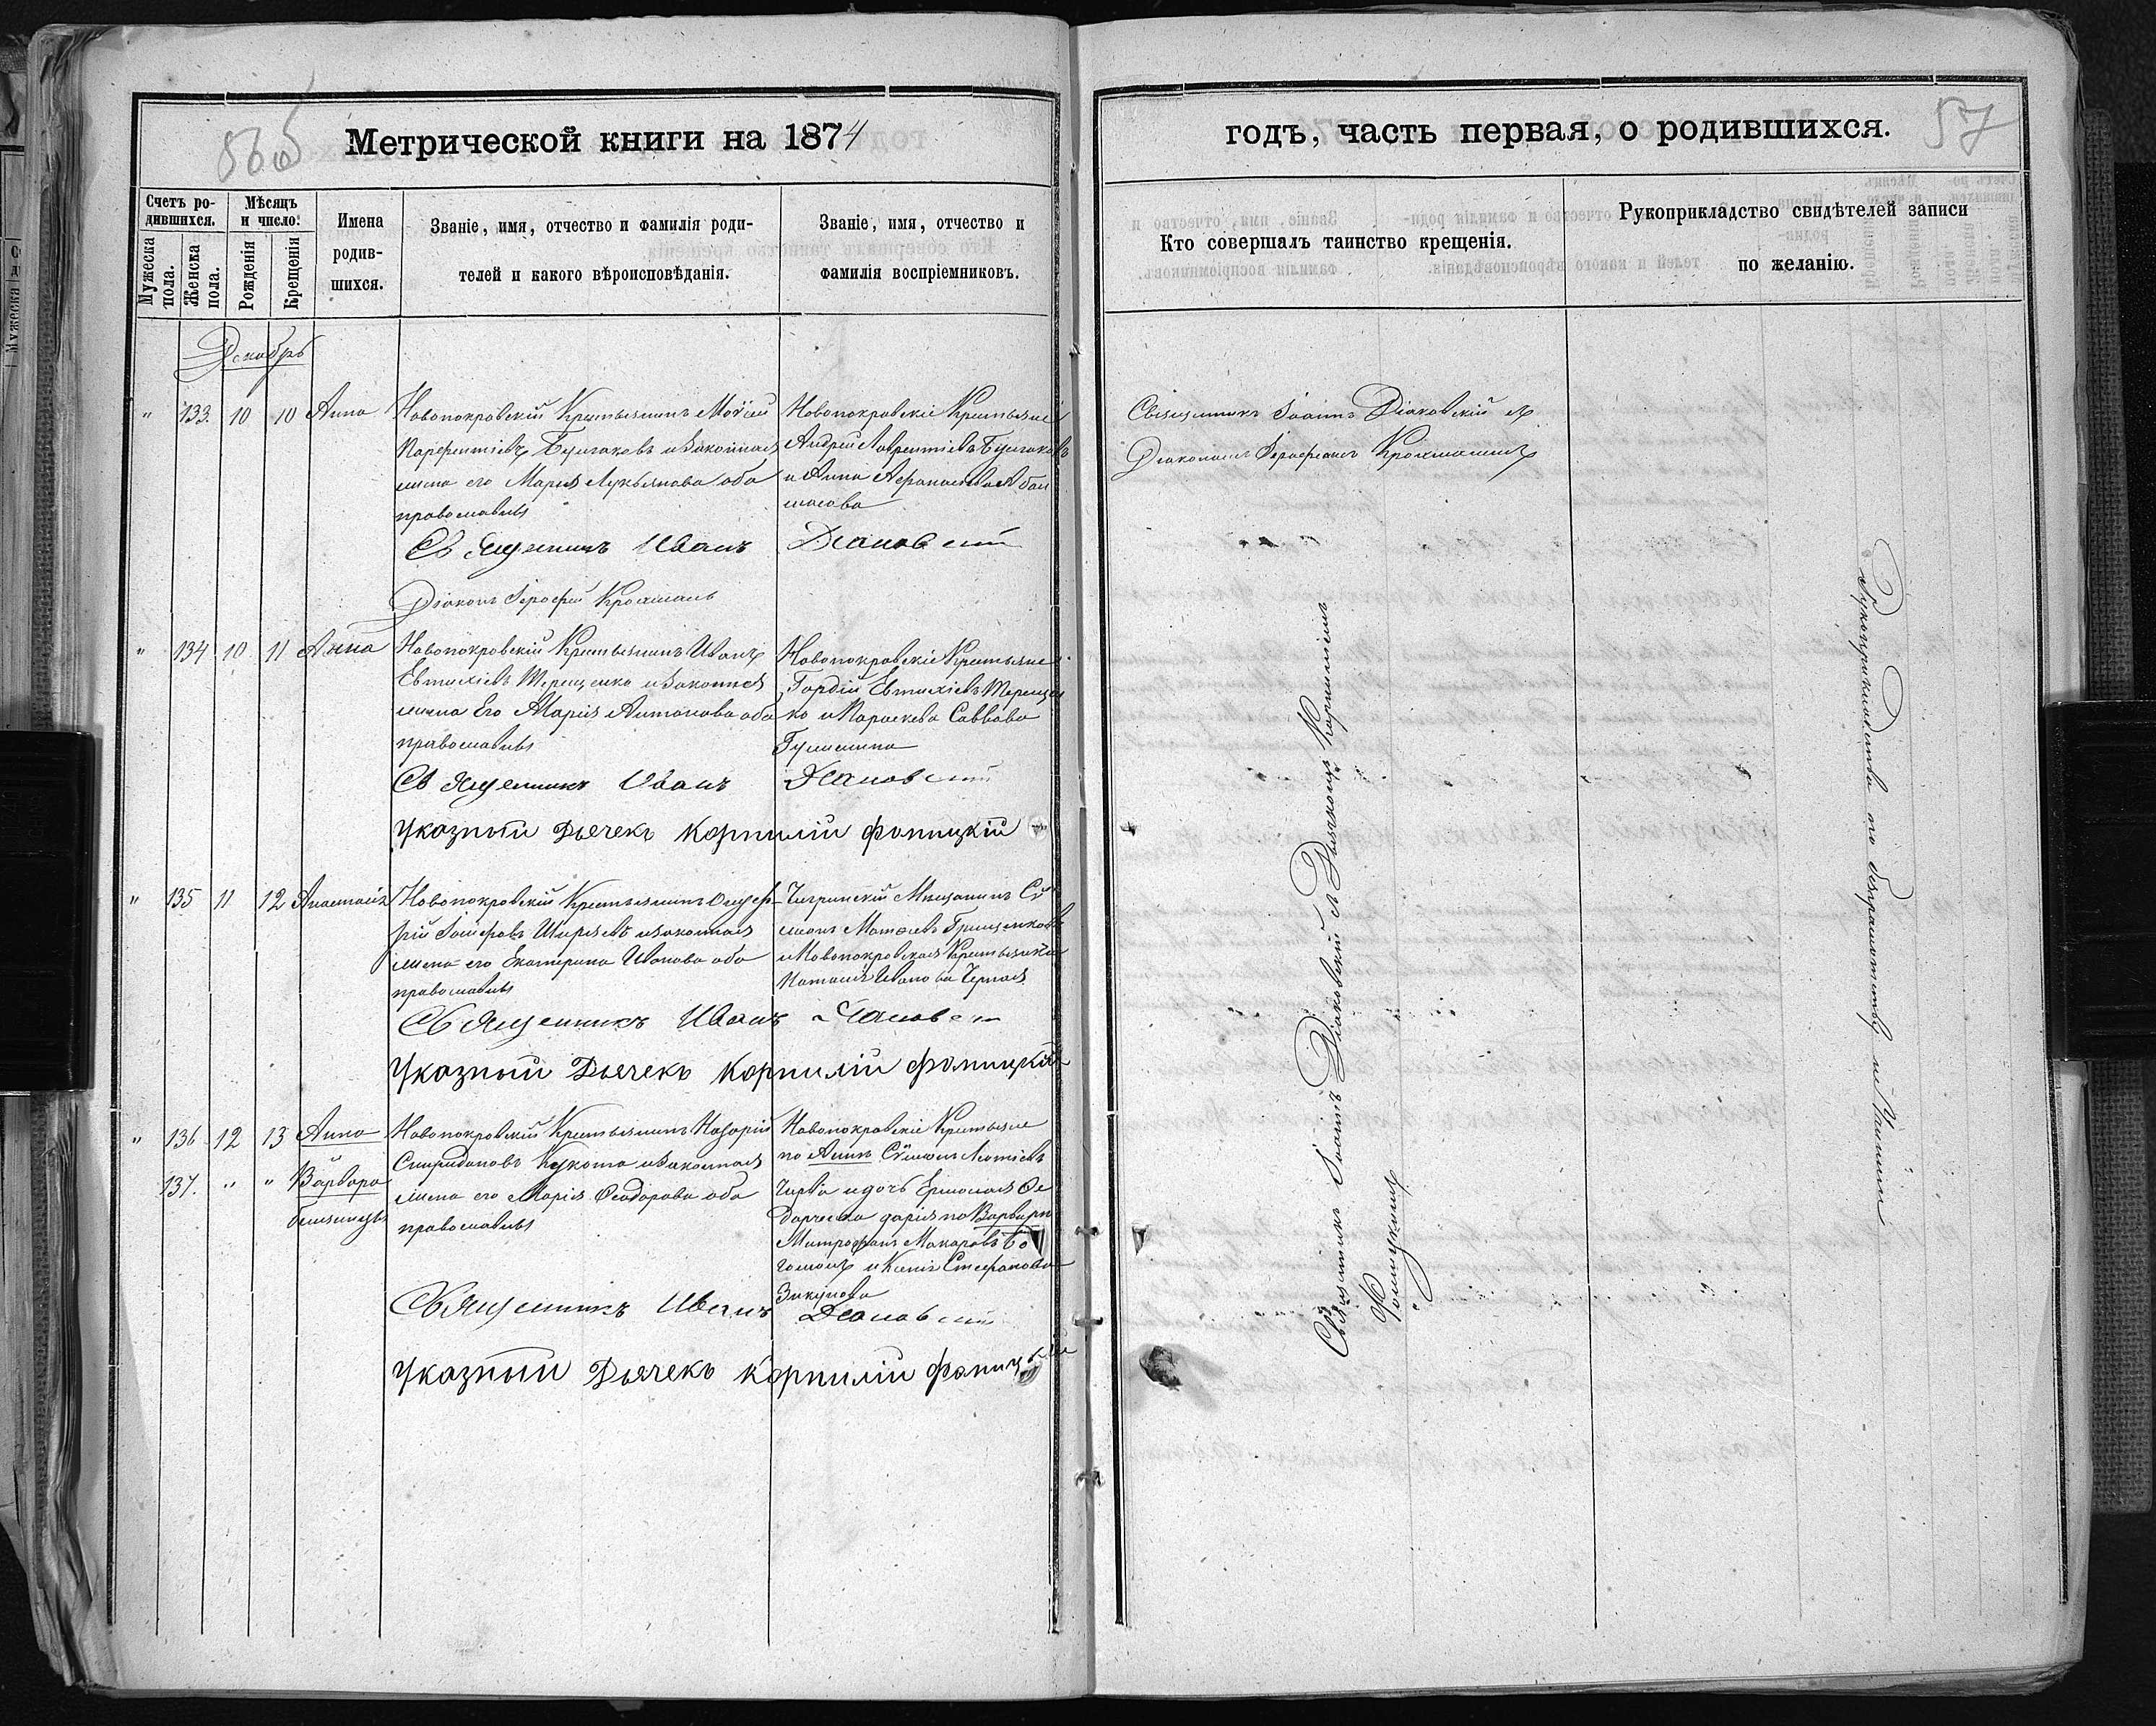 565
Метрической книги на 1874
Счетъ ро-
дившихся.
Мужеска
пола.
Женска
пола.
Мѣсяцъ
и число.
Рожденія
Крещенія
Имена
родив-
шихся.
Званіе, имя, отчество и фамилія роди-
телей и какого вѣроисповѣданія.
Званіе, имя, отчество и
фамилія воспріемниковъ.
Декабрь
" 133. 10 10 Анна
Новопокровскій Крестьянинъ Моѵсей
Парфентіевъ Булгаковъ и законная
жена его Марія Лукьянова оба
православны
Новопокровскіе Крестьяне
Андрей Лаврентіевъ Булгаковъ
и Анна Афанасьева
Священникъ Иванъ Діаковскій
Діаконъ Іерофей Крохмаль
" 134 10 11 Анна
Новопокровскій Крестьянинъ Иванъ
Евтихіевъ Терещенко и законная
жена Его Марія Антонова оба
православны
Новопокровскіе Крестьяне
Гордій Евтихіевъ Терещен
ко и Параскева Саввова
Священникъ Иванъ Діаковскій
Указный Дьячекъ Корнилій Фомицкій
" 135 11 12 Анастасія
Новопокровскій Крестьянинъ Онуф-
рій Іосифовъ Ширяевъ и законная
жена его Екатерина Иванова оба
православны
Чигринскій Мѣщанинъ Сѵ
меонъ Матѳеевъ Грищенковъ
и Новопокровская Крестьянка
Наталія Иванова Черная
Священникъ Иванъ Діаковскій
Указный Дьячекъ Корнилій Фомицкій
" 136 12 13 Анна
137. " " и Варвара
близнецы
Новопокровскій Крестьянинъ Назарій
Спиридоновъ Кукота и законная
жена его Марія Ѳеодорова оба
православны
Новопокровскіе Крестьяне
по Аннѣ Сѵмеонъ
и дочь Ермолая Ѳе
Дарія по Варварѣ
Митрофанъ Макаровъ Бо
и Ксенія Стефанова
Священникъ Иванъ Діаковскій
Указный Дьячекъ Корнилій Фомицкій
57
годъ, часть первая, о родившихся.
Кто совершалъ таинство крещенія.
Рукоприкладство свидѣтелей записи
по желанію.
Священникъ Іоаннъ Діаковскій съ
Діакономъ Іерофеемъ Крохмалемъ
Священникъ Іоаннъ Діаковскій съ Дьячкомъ Корниліемъ
Фомицкимъ
Рукоприкладства по безграмотству не учинили